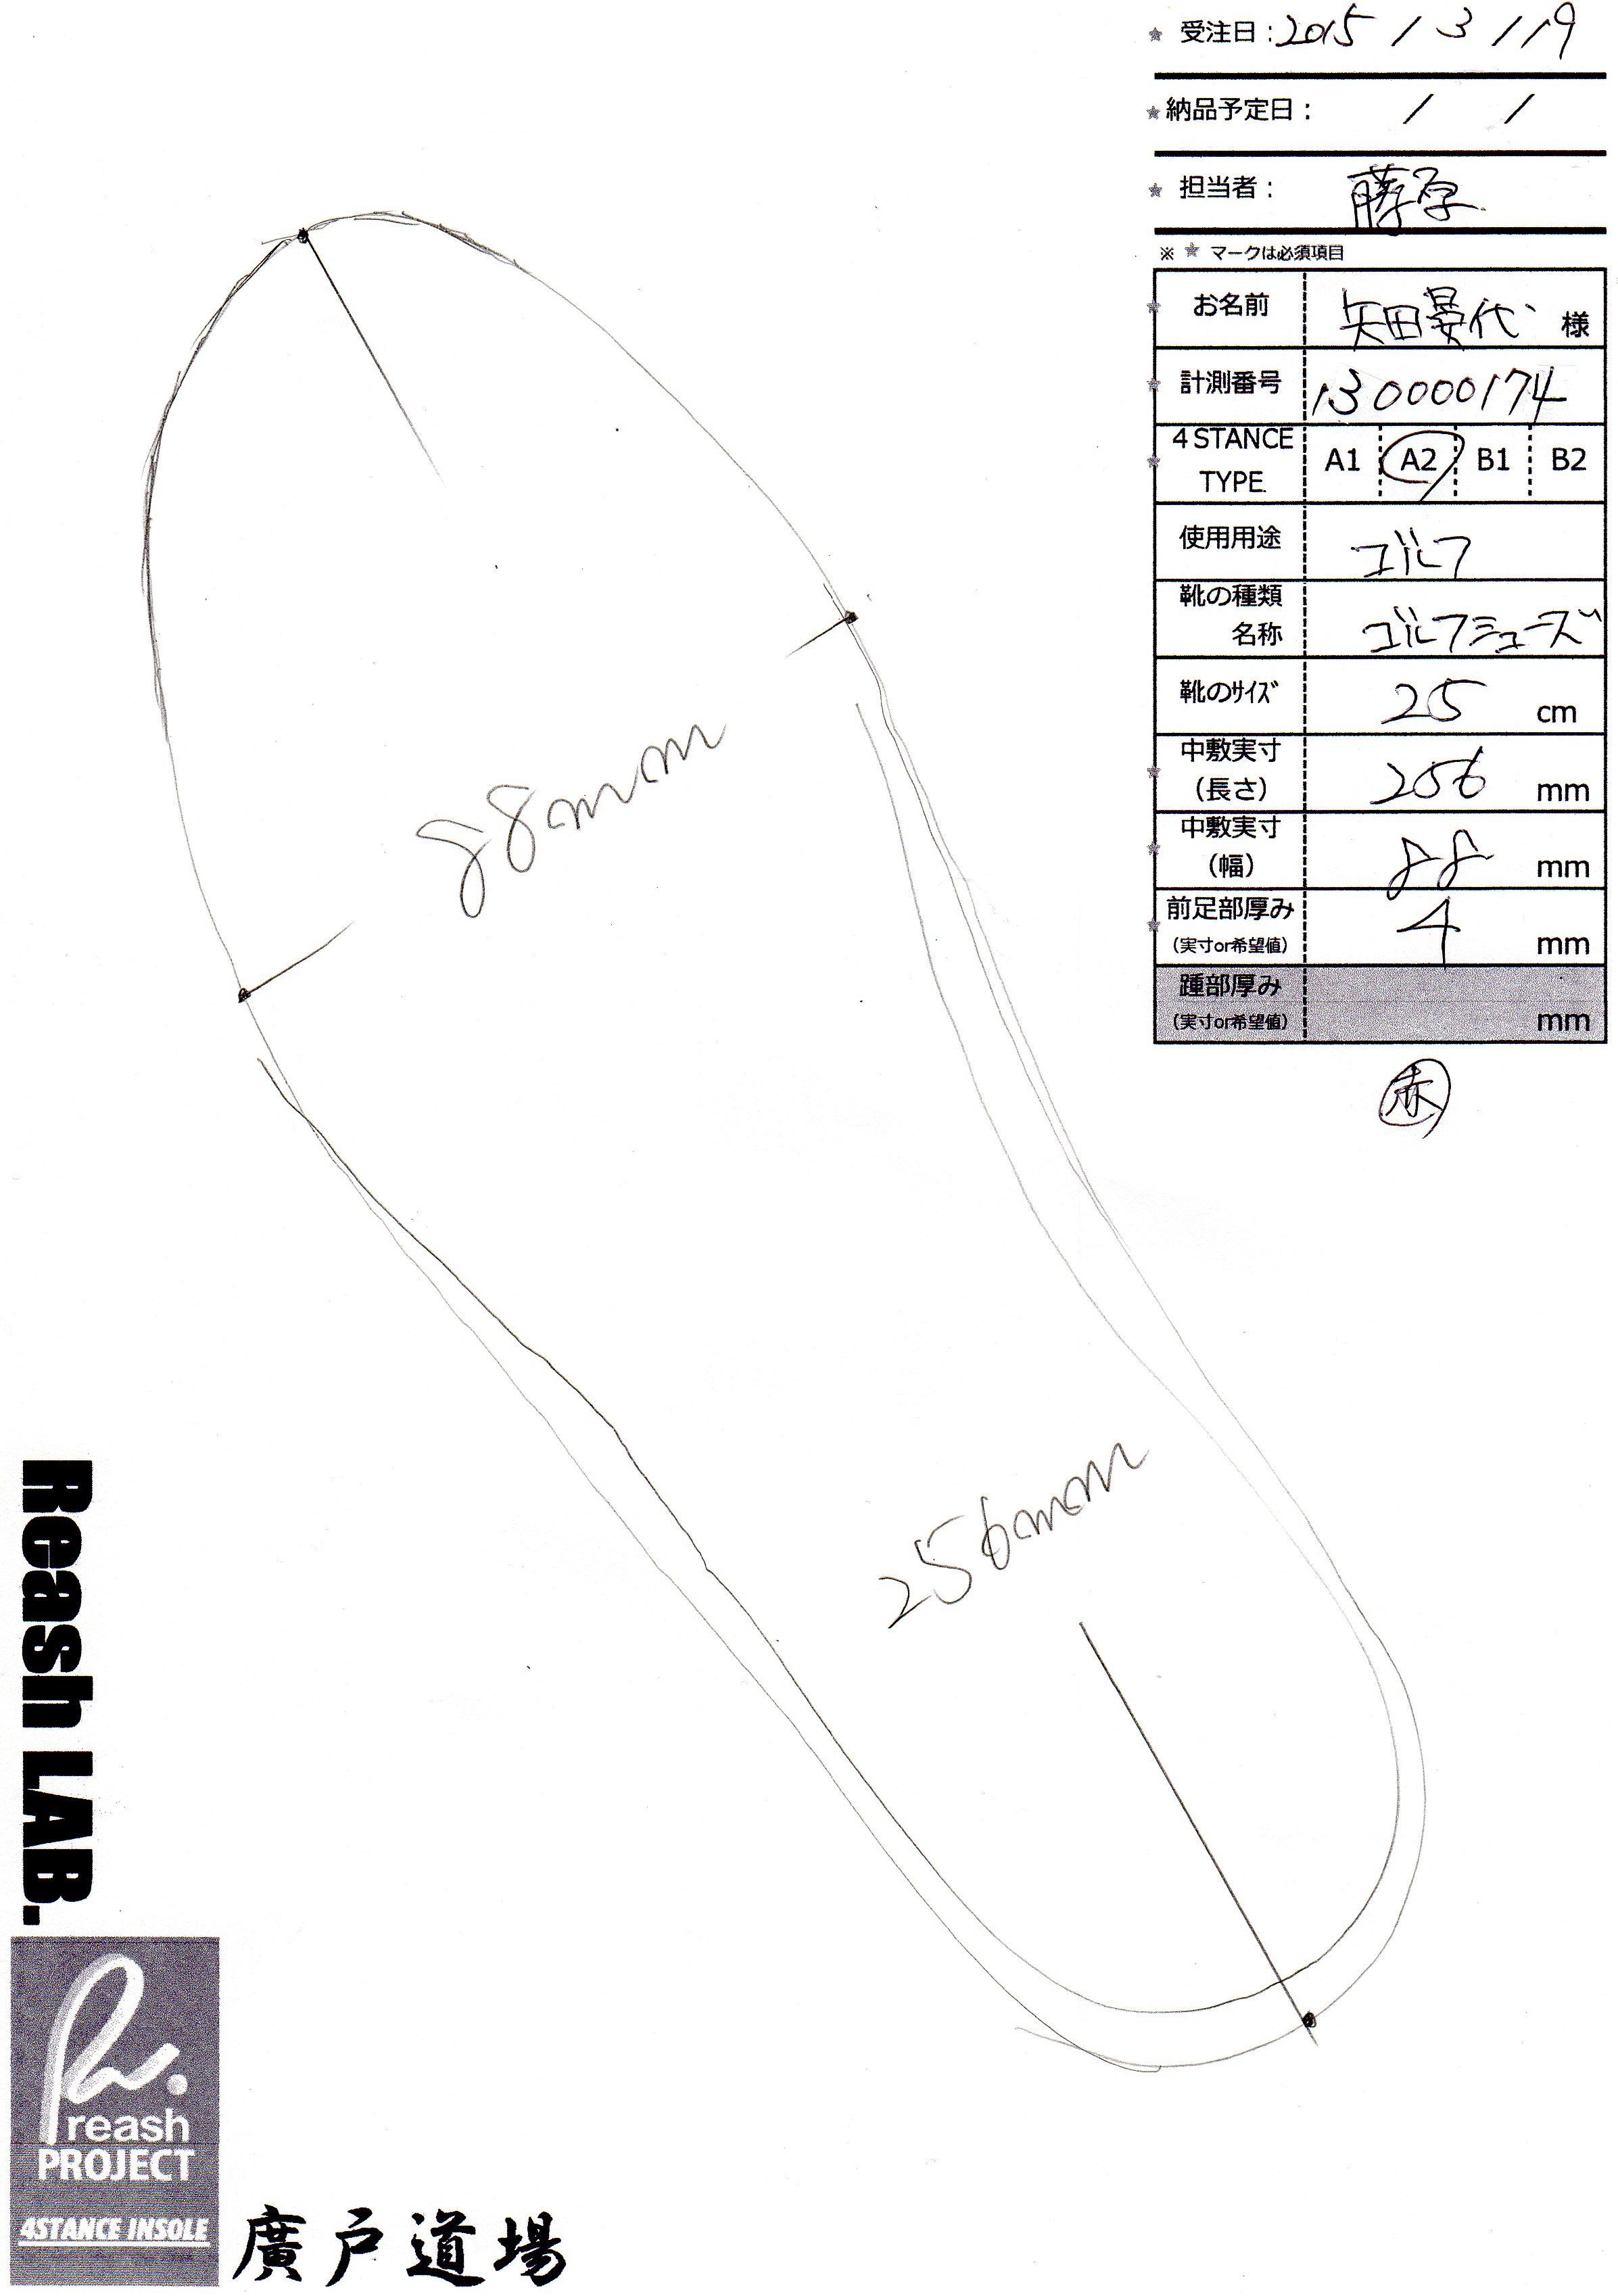 ★ 受注日：2015 / 3 / 19
★ 納品予定日： / /
★ 担当者： 藤原
※ ★ マークは必須項目
★ お名前 矢田晏代 様
★ 計測番号 130000174
★ 4STANCE TYPE. A1 A2 B1 B2
使用用途 ゴルフ
靴の種類 名称 ゴルフシューズ
靴のサイズ 25 cm
★ 中敷実寸（長さ） 256 mm
★ 中敷実寸（幅） 88 mm
★ 前足部厚み（実寸or希望値） 4 mm
踵部厚み（実寸or希望値） mm
赤
88mm
256mm
Reash LAB.
reash
PROJECT
4STANCE INSOLE
廣戸道場